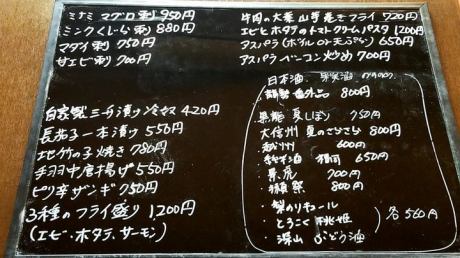 ミナミマグロ刺 950円
ミンクくじら刺 880円
マダイ刺 750円
甘エビ刺 700円
自家製三升漬け冷奴 420円
長茄子一本漬け 550円
地竹の子焼き 780円
手羽中唐揚げ 550円
ピリ辛ザンギ 750円
3種のフライ盛り 1200円
(エビ・ホタテ、サーモン)
牛肉の大葉山芋巻きフライ 720円
エビとホタテのトマトクリームパスタ 1200円
アスパラ(ボイル or 天ぷら) 650円
アスパラベーコン炒め 700円
日本酒
番外品 800円
黒龍 夏しぼり 750円
大信州 夏のさらさら 800円
越州 600円
600円
650円
700円
獺祭 800円
・梨のリキュール
・とろこく桃姫
・深山ぶどう酒
各560円